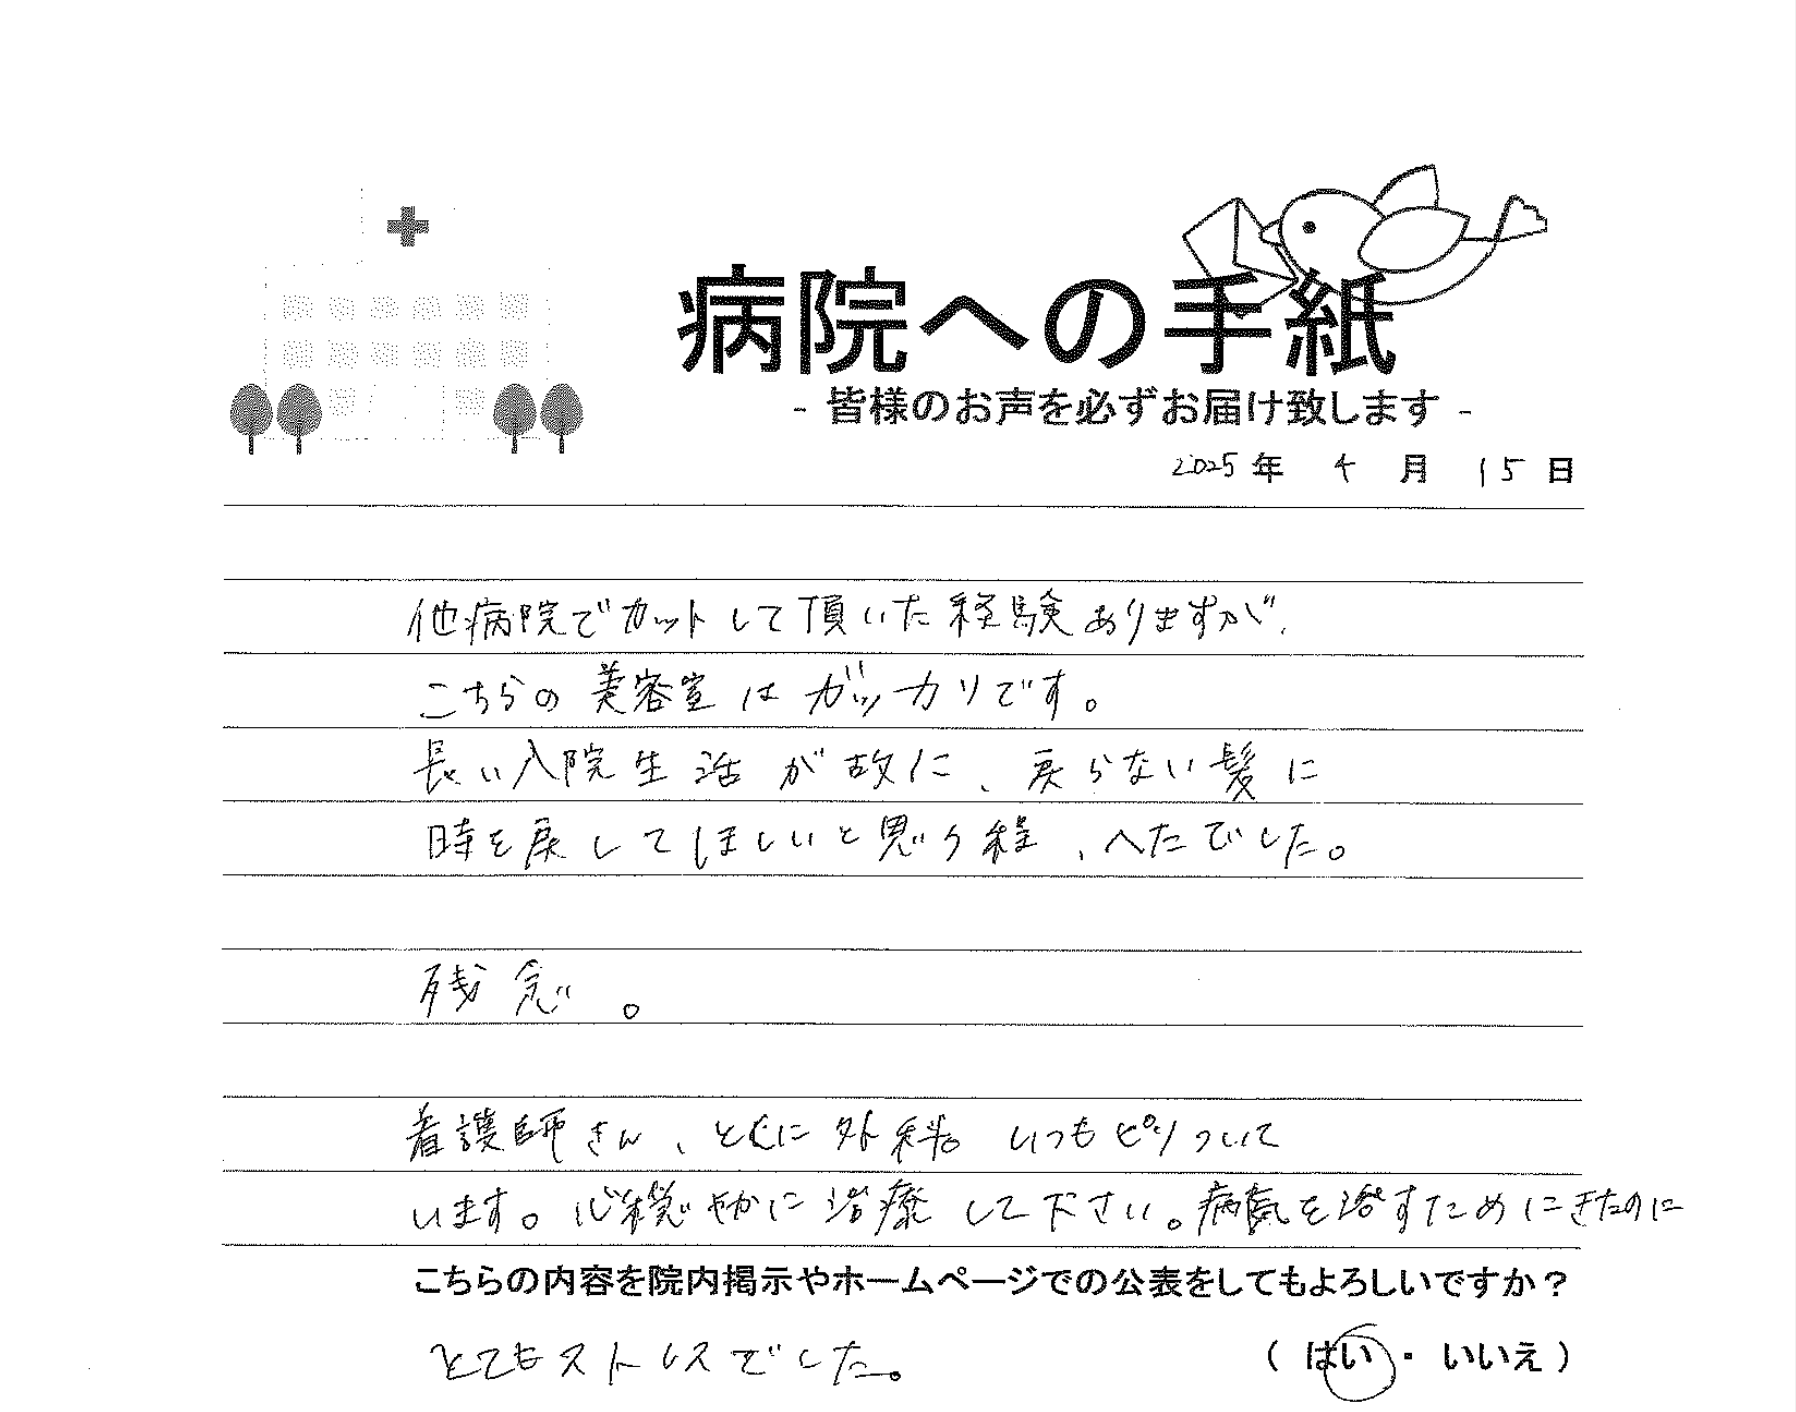 病院への手紙
- 皆様のお声を必ずお届け致します -
2025年 4 月 15 日
他病院でカットして頂いた経験ありますが、
こちらの美容室はガッカリです。
長い入院生活が故に、戻らない髪に
時を戻してほしいと思う程、へたでした。
残念。
看護師さん、とくに外科。いつもピリついて
います。心穏やかに治療して下さい。病気を治すためにきたのに
こちらの内容を院内掲示やホームページでの公表をしてもよろしいですか？
とてもストレスでした。
（ はい ・ いいえ ）